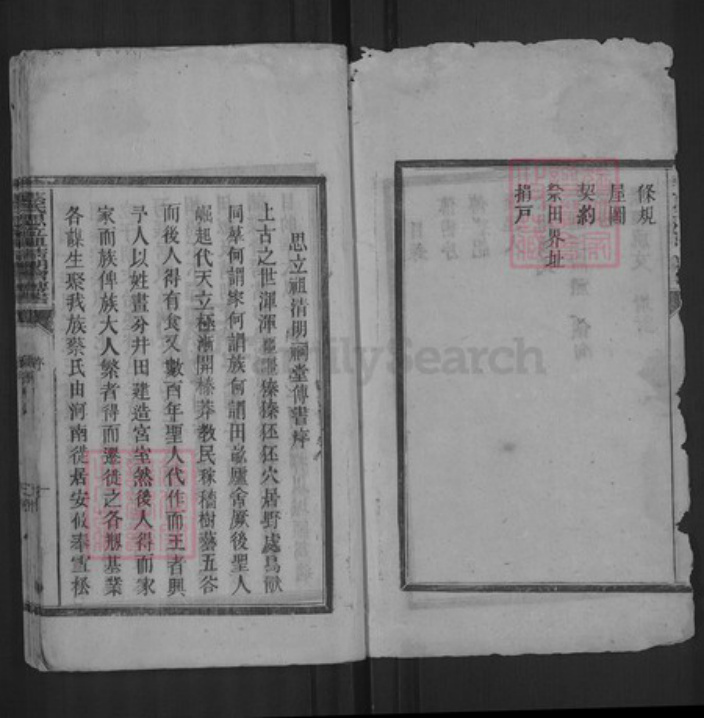 條規
屋圖
契約
祭田界址
捐戸
思立祖清明祠堂傳書序
上古之世渾渾噩噩獉獉狉狉穴居野處鳥獸
同羣何謂家何謂族何謂田畝廬舍厥後聖人
崛起代天立極漸開榛莽教民稼穡樹藝五谷
而後人得有食又數百年聖人代作而王者興
予人以姓畫分井田建造宮室然後人得而家
家而族俾族大人繁者得而遷徙之各剏基業
各謀生聚我族蔡氏由河南徙居安攸奉雪松
序
FamilySearch